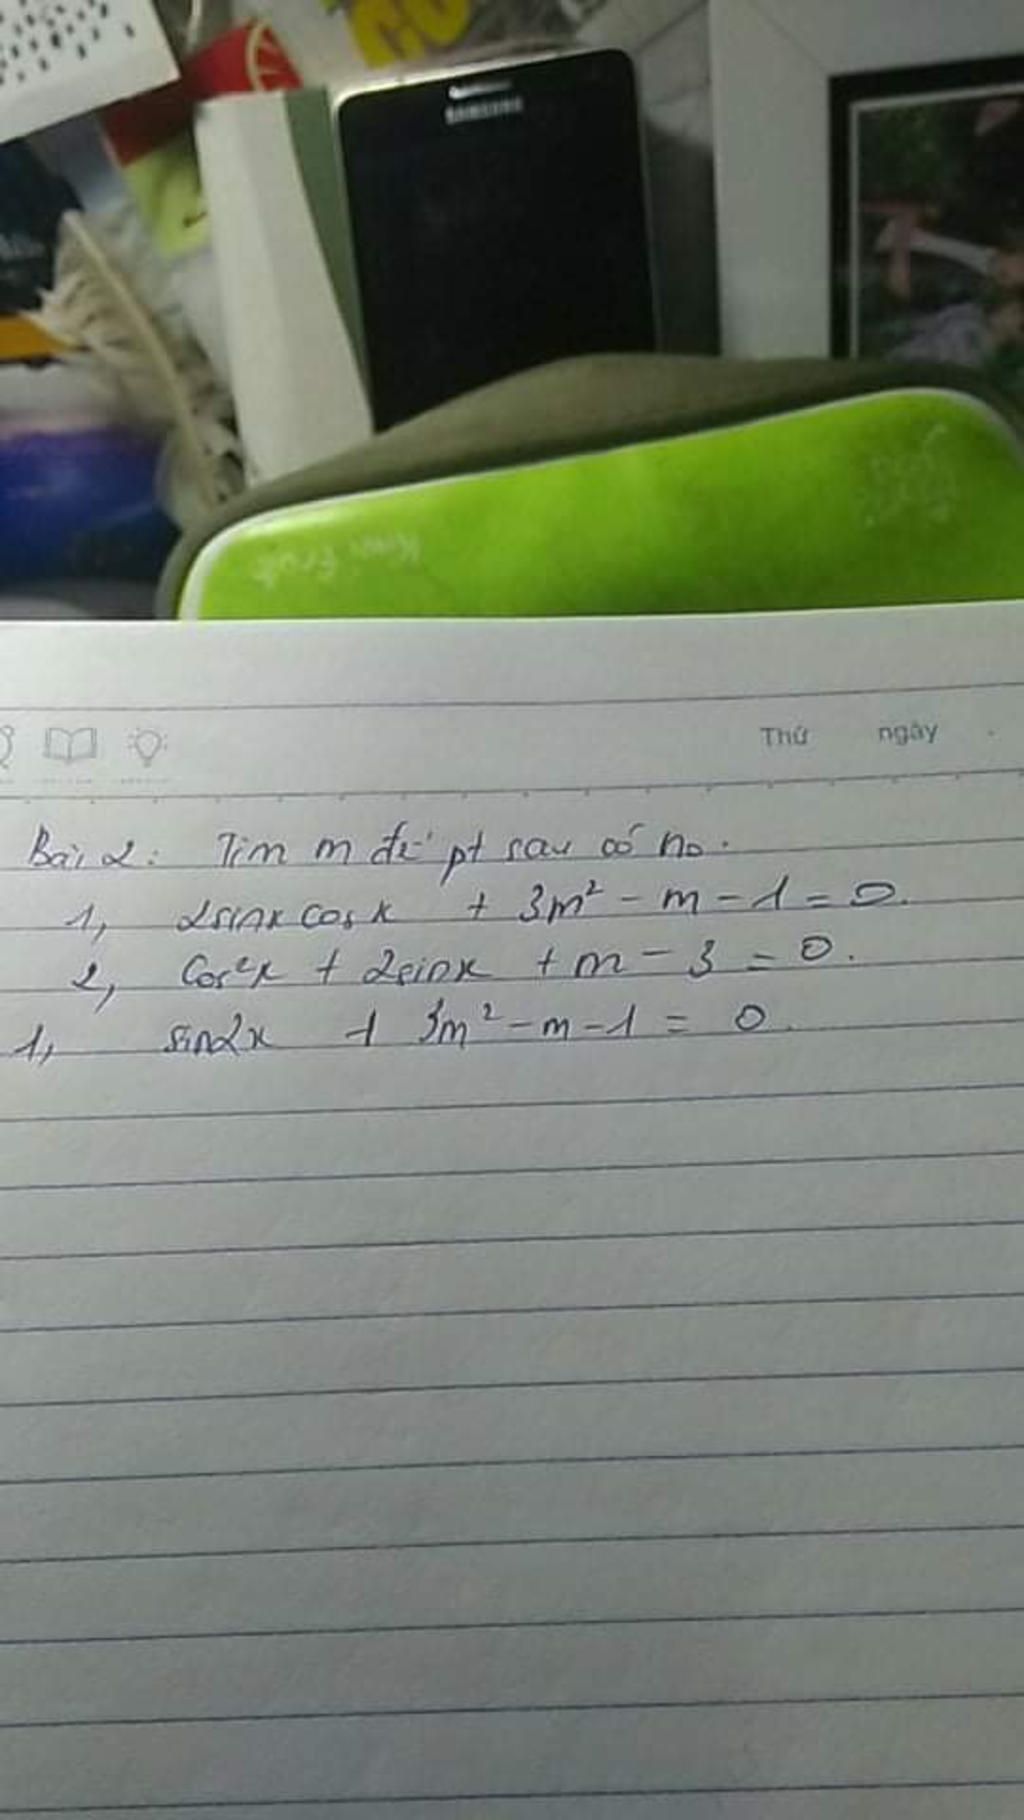 SAMSUNG
Kiwi Fruit
Thứ ngày
Bài 2: Tìm m để pt sau có no.
1, 2sinx cosx + 3m² - m - 1 = 0.
2, Cos²x + 2sinx + m - 3 = 0.
1, sin2x + 3m² - m - 1 = 0.